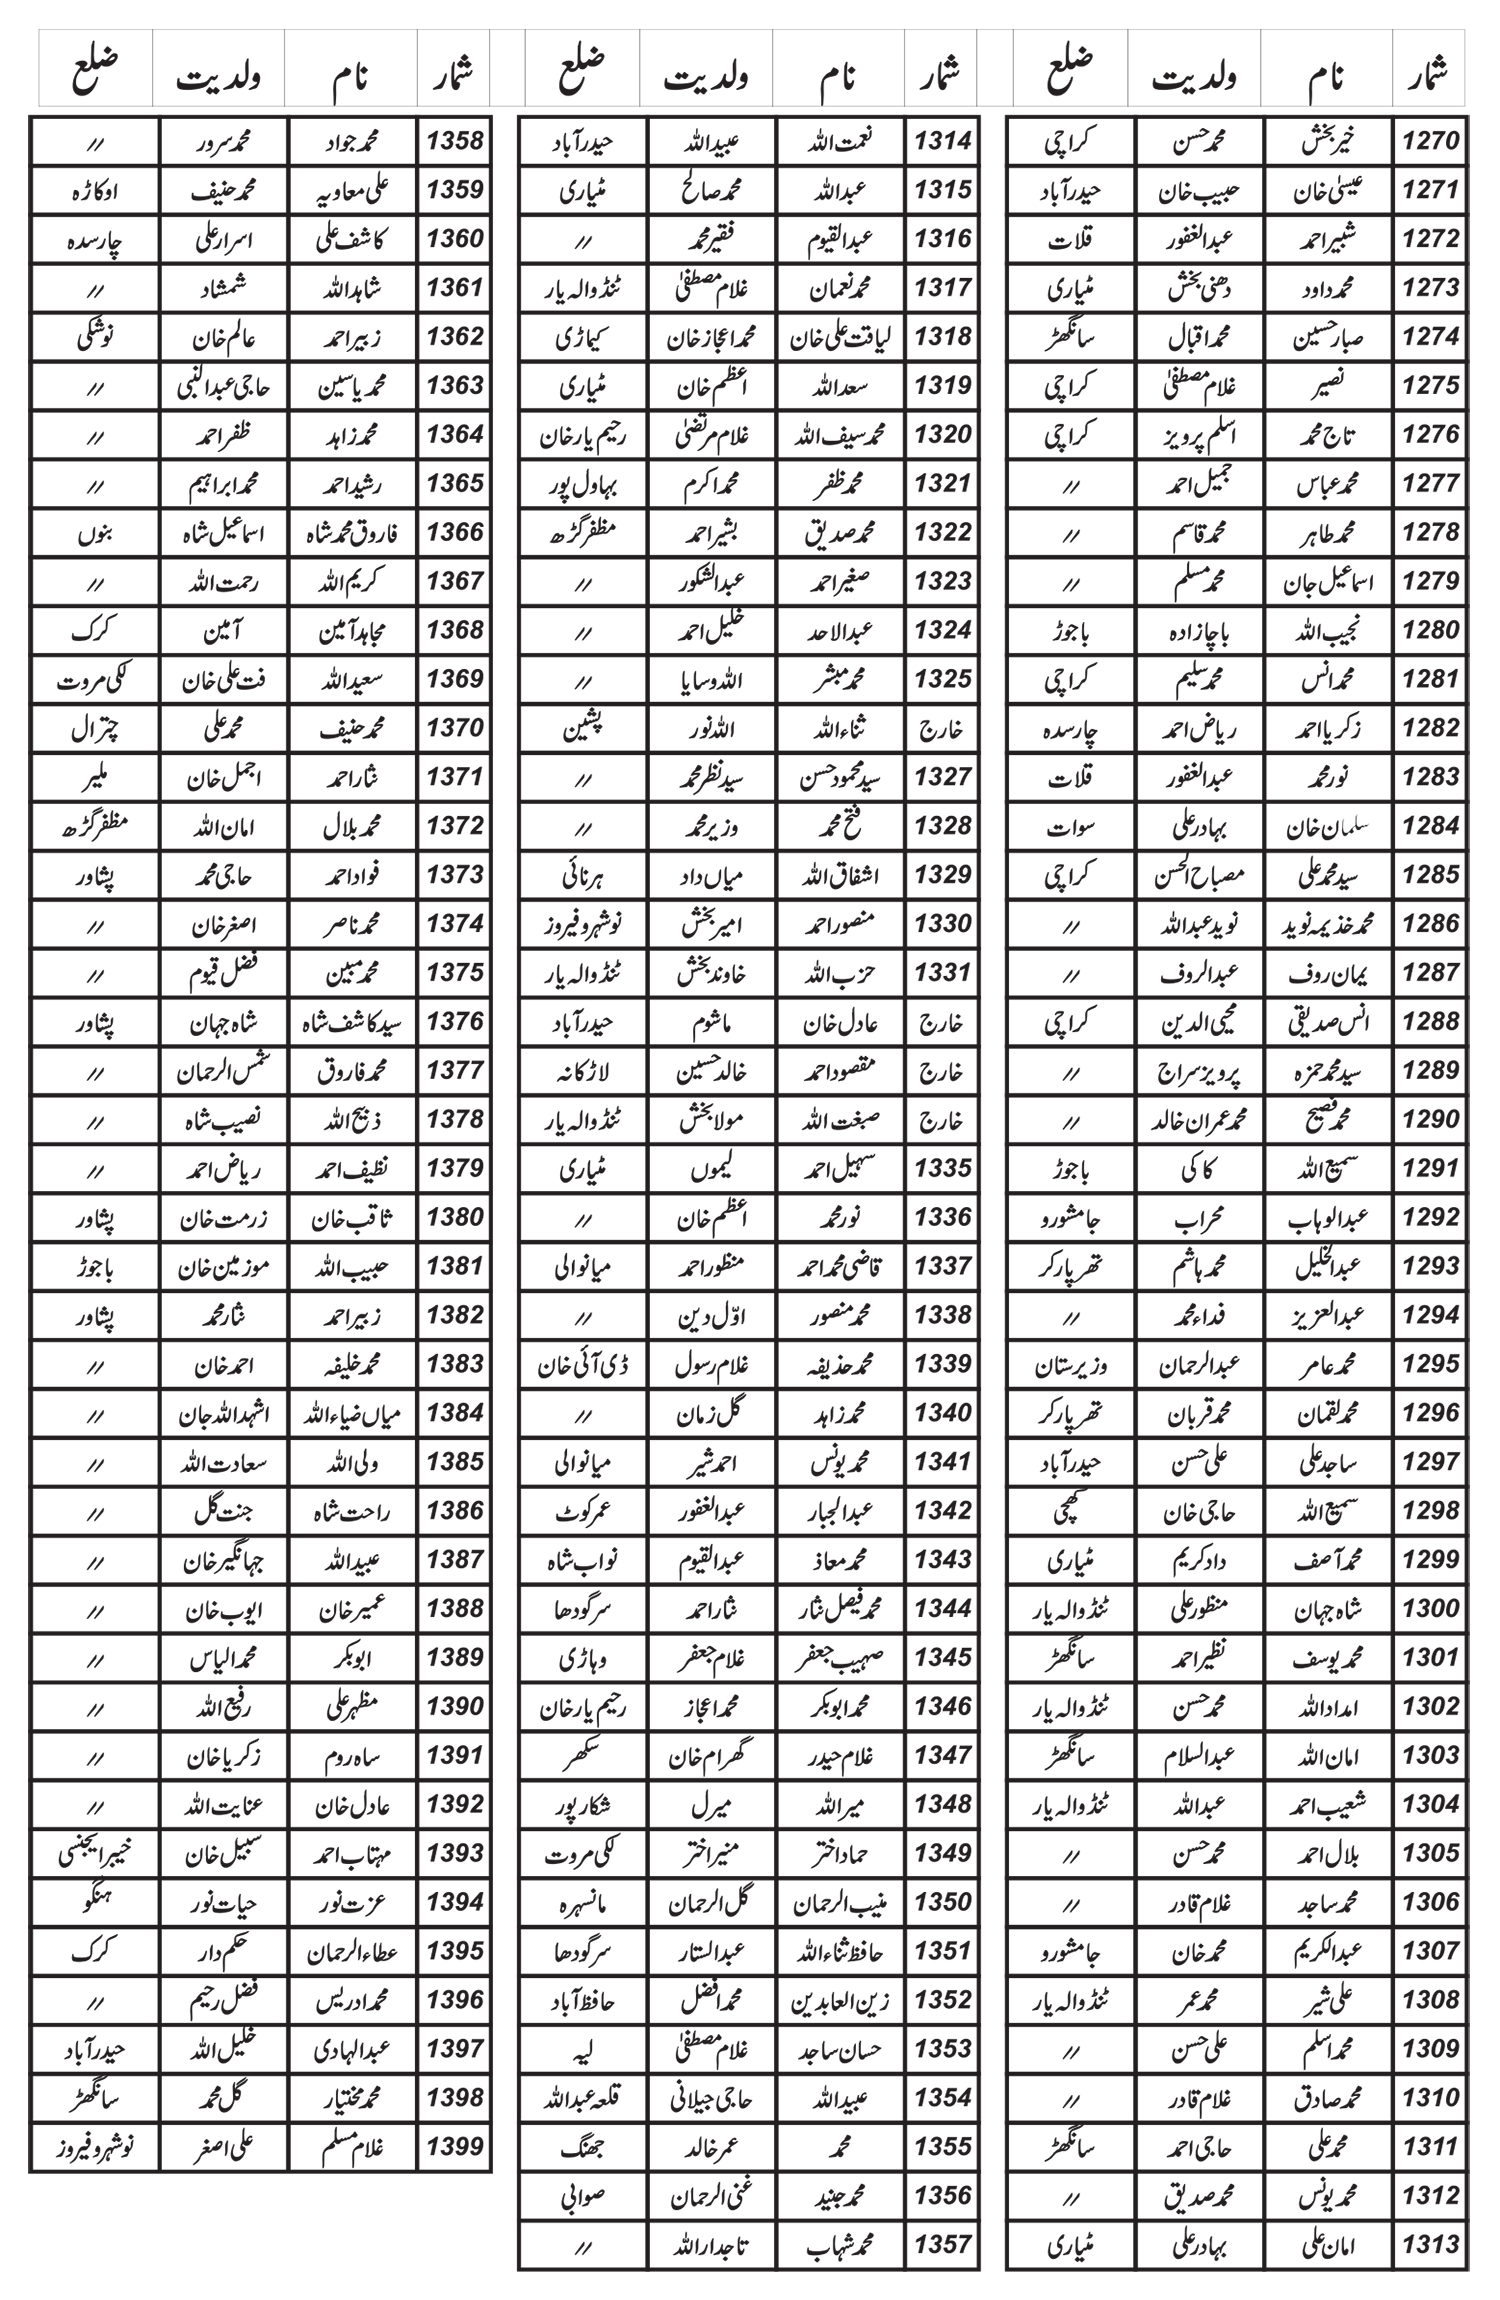 شمار نام ولدیت ضلع
1270 خیربخش محمدحسن کراچی
1271 عیسیٰ خان حبیب خان حیدرآباد
1272 شبیراحمد عبدالغفور قلات
1273 محمدداود دھنی بخش مٹیاری
1274 صبارحسین محمداقبال سانگھڑ
1275 نصیر غلام مصطفیٰ کراچی
1276 تاج محمد اسلم پرویز کراچی
1277 محمدعباس جمیل احمد //
1278 محمدطاہر محمدقاسم //
1279 اسماعیل جان محمدمسلم //
1280 نجیب اللہ باچازادہ باجوڑ
1281 محمدانس محمدسلیم کراچی
1282 زکریااحمد ریاض احمد چارسدہ
1283 نورمحمد عبدالغفور قلات
1284 سلمان خان بہادرعلی سوات
1285 سیدمحمدعلی مصباح الحسن کراچی
1286 محمدخذیمہ نوید نویدعبداللہ //
1287 یمان روف عبدالروف //
1288 انس صدیقی محیی الدین کراچی
1289 سیدمحمدحمزہ پرویزسراج //
1290 محمدفصیح محمدعمران خالد //
1291 سمیع اللہ کاکی باجوڑ
1292 عبدالوہاب محراب جامشورو
1293 عبدالخلیل محمدہاشم تھرپارکر
1294 عبدالعزیز فداءمحمد //
1295 محمدعامر عبدالرحمان وزیرستان
1296 محمدلقمان محمدقربان تھرپارکر
1297 ساجدعلی علی حسن حیدرآباد
1298 سمیع اللہ حاجی خان کچھی
1299 محمدآصف دادکریم مٹیاری
1300 شاہ جہان منظورعلی ٹنڈوالہ یار
1301 محمدیوسف نظیراحمد سانگھڑ
1302 امداداللہ محمدحسن ٹنڈوالہ یار
1303 امان اللہ عبدالسلام سانگھڑ
1304 شعیب احمد عبداللہ ٹنڈوالہ یار
1305 بلال احمد محمدحسن //
1306 محمدساجد غلام قادر //
1307 عبدالکریم محمدخان جامشورو
1308 علی شیر محمدعمر ٹنڈوالہ یار
1309 محمداسلم علی حسن //
1310 محمدصادق غلام قادر //
1311 محمدعلی حاجی احمد سانگھڑ
1312 محمدیونس محمدصدیق //
1313 امان علی بہادرعلی مٹیاری
شمار نام ولدیت ضلع
1314 نعمت اللہ عبیداللہ حیدرآباد
1315 عبداللہ محمدصالح مٹیاری
1316 عبدالقیوم فقیرمحمد //
1317 محمدنعمان غلام مصطفیٰ ٹنڈوالہ یار
1318 لیاقت علی خان محمداعجازخان کیماڑی
1319 سعداللہ اعظم خان مٹیاری
1320 محمدسیف اللہ غلام مرتضیٰ رحیم یارخان
1321 محمدظفر محمداکرم بہاول پور
1322 محمدصدیق بشیراحمد مظفرگڑھ
1323 صغیراحمد عبدالشکور //
1324 عبدالاحد خلیل احمد //
1325 محمدمبشر اللہ وسایا //
خارج ثناءاللہ اللہ نور پشین
1327 سیدمحمودحسن سیدنظرمحمد //
1328 فتح محمد وزیرمحمد //
1329 اشفاق اللہ میاں داد ہرنائی
1330 منصوراحمد امیربخش نوشہروفیروز
1331 حزب اللہ خاوندبخش ٹنڈوالہ یار
خارج عادل خان ماشوم حیدرآباد
خارج مقصوداحمد خالدحسین لاڑکانہ
خارج صبغت اللہ مولابخش ٹنڈوالہ یار
1335 سہیل احمد لیموں مٹیاری
1336 نورمحمد اعظم خان //
1337 قاضی محمداحمد منظوراحمد میانوالی
1338 محمدمنصور اوّل دین //
1339 محمدحذیفہ غلام رسول ڈی آئی خان
1340 محمدزاہد گل زمان //
1341 محمدیونس احمدشیر میانوالی
1342 عبدالجبار عبدالغفور عمرکوٹ
1343 محمدمعاذ عبدالقیوم نواب شاہ
1344 محمدفیصل نثار نثاراحمد سرگودھا
1345 صہیب جعفر غلام جعفر وہاڑی
1346 محمدابوبکر محمداعجاز رحیم یارخان
1347 غلام حیدر گھرام خان سکھر
1348 میراللہ میرل شکارپور
1349 حماداختر منیراختر لکی مروت
1350 منیب الرحمان گل الرحمان مانسہرہ
1351 حافظ ثناءاللہ عبدالستار سرگودھا
1352 زین العابدین محمدافضل حافظ آباد
1353 حسان ساجد غلام مصطفیٰ لیہ
1354 عبیداللہ حاجی جیلانی قلعہ عبداللہ
1355 محمد عمرخالد جھنگ
1356 محمدجنید غنی الرحمان صوابی
1357 محمدشہاب تاجداراللہ //
شمار نام ولدیت ضلع
1358 محمدجواد محمدسرور //
1359 علی معاویہ محمدحنیف اوکاڑہ
1360 کاشف علی اسرارعلی چارسدہ
1361 شاہداللہ شمشاد //
1362 زبیراحمد عالم خان نوشکی
1363 محمدیاسین حاجی عبدالنبی //
1364 محمدزاہد ظفراحمد //
1365 رشیداحمد محمدابراہیم //
1366 فاروق محمدشاہ اسماعیل شاہ بنوں
1367 کریم اللہ رحمت اللہ //
1368 مجاہدآمین آمین کرک
1369 سعیداللہ فت علی خان لکی مروت
1370 محمدحنیف محمدعلی چترال
1371 نثاراحمد اجمل خان ملیر
1372 محمدبلال امان اللہ مظفرگڑھ
1373 فواداحمد حاجی محمد پشاور
1374 محمدناصر اصغرخان //
1375 محمدمبین فضل قیوم //
1376 سیدکاشف شاہ شاہ جہان پشاور
1377 محمدفاروق شمس الرحمان //
1378 ذبیح اللہ نصیب شاہ //
1379 نظیف احمد ریاض احمد //
1380 ثاقب خان زرمت خان پشاور
1381 حبیب اللہ موزمین خان باجوڑ
1382 زبیراحمد نثارمحمد پشاور
1383 محمدخلیفہ احمدخان //
1384 میاں ضیاءاللہ اشہداللہ جان //
1385 ولی اللہ سعادت اللہ //
1386 راحت شاہ جنت گل //
1387 عبیداللہ جہانگیرخان //
1388 عمیرخان ایوب خان //
1389 ابوبکر محمدالیاس //
1390 مظہرعلی رفیع اللہ //
1391 ساہ روم زکریاخان //
1392 عادل خان عنایت اللہ //
1393 مہتاب احمد سبیل خان خیبرایجنسی
1394 عزت نور حیات نور ہنگو
1395 عطاءالرحمان حکم دار کرک
1396 محمدادریس فضل رحیم //
1397 عبدالہادی خلیل اللہ حیدرآباد
1398 محمدمختیار گل محمد سانگھڑ
1399 غلام مسلم علی اصغر نوشہروفیروز